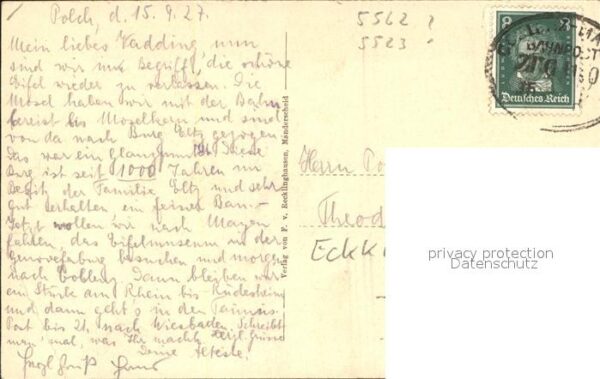 Polch, d. 15.9.27.
Mein liebes Vadding, nun
sind wir im Begriff, die schöne
Eifel wieder zu verlassen. Die
Mosel haben wir mit der Bahn
bereist bis Moselkern und sind
von da nach Burg Eltz gezogen.
Das war ein Glanzpunkt. Diese
Burg ist seit 1000 Jahren im
Besitz der Familie Eltz und sehr
gut erhalten ein feiner Bau.
Jetzt wollen wir nach Mayen
fahren, das Eifelmuseum in der
Genovefaburg besuchen und morgen
nach Coblenz. Dann bleiben wir
ein Stück am Rhein bis Rüdesheim
und dann geht's in den Taunus.
Post bis 21. nach Wiesbaden. Schreibt
man' mal, was Ihr macht. Herzl. Grüsse
Deine Alteste.
Hans
5562 ?
5523
8 8
Deutsches Reich
BAHNPOST
ZUG
Verlag von F. v. Recklinghausen, Manderscheid
Herrn
Theod
privacy protection
Datenschutz